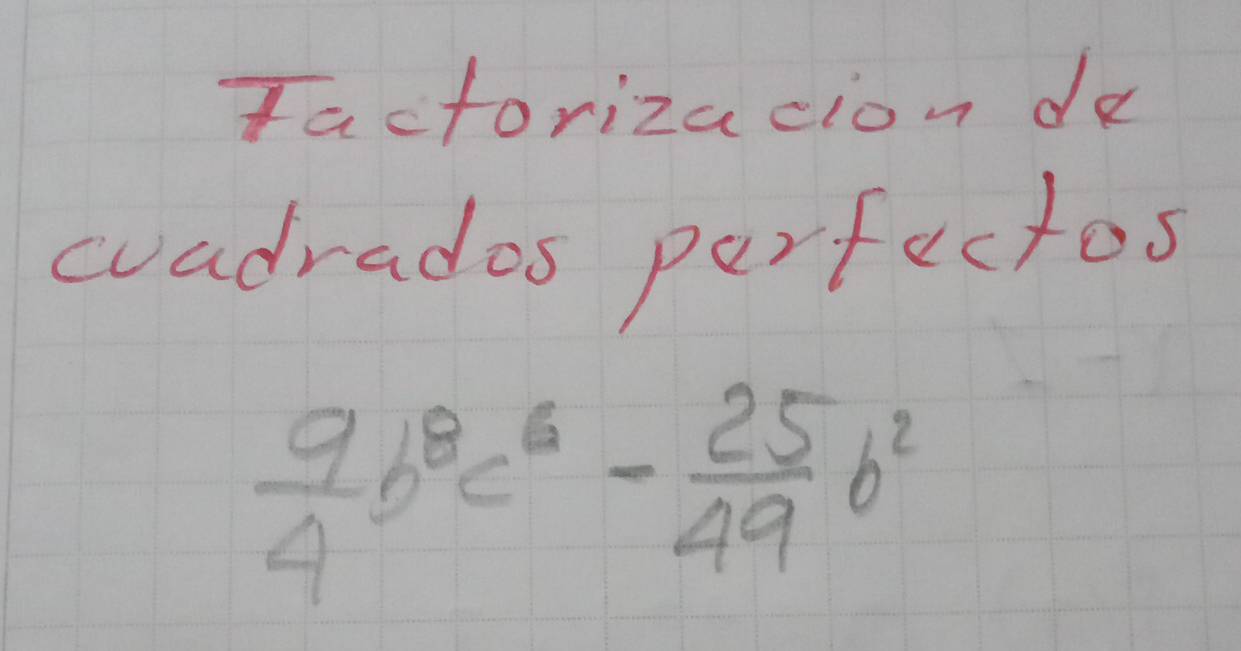 Factorizacion de
cuadrados perfectos
9/4 b⁸c⁶ - 25/49 b²